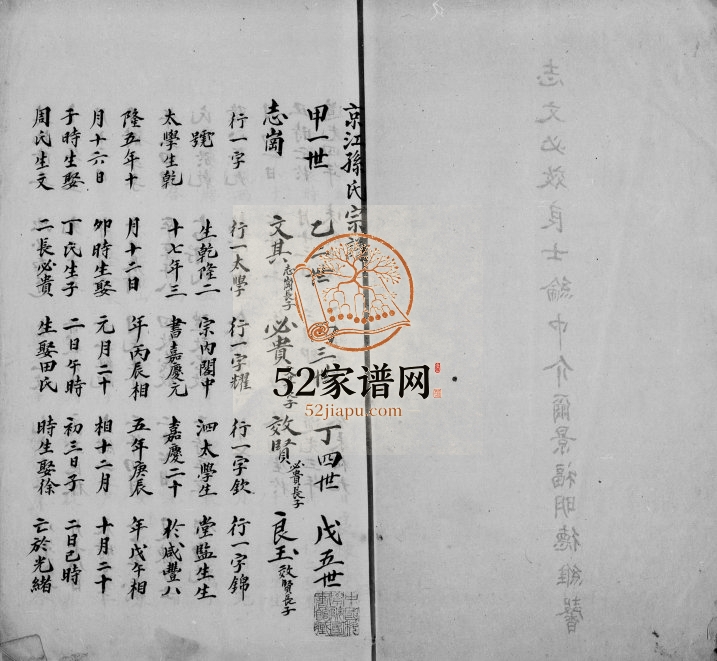 志文必效良士綸中介爾景福明德維馨
京江孫氏宗
甲一世 乙二世 三 丁四世 戊五世
志崗 文其 志崗長子 必貴 子 效賢 必貴長子 良玉 效賢長子
行一字 行一太學 行一字耀 行一字欽 行一字錦
號 生乾隆二 宗內閣中 泗太學生 堂監生生
太學生乾 十七年三 書嘉慶元 嘉慶二十 於咸豐八
隆五年十 月十二日 年丙辰相 五年庚辰 年戊午相
月十六日 卯時生娶 元月二十 相十二月 十月二十
子時生娶 丁氏生子 二日午時 初三日子 二日巳時
周氏生文 二長必貴 生娶田氏 時生娶徐 亡於光緒
52家谱网
52jiapu.com